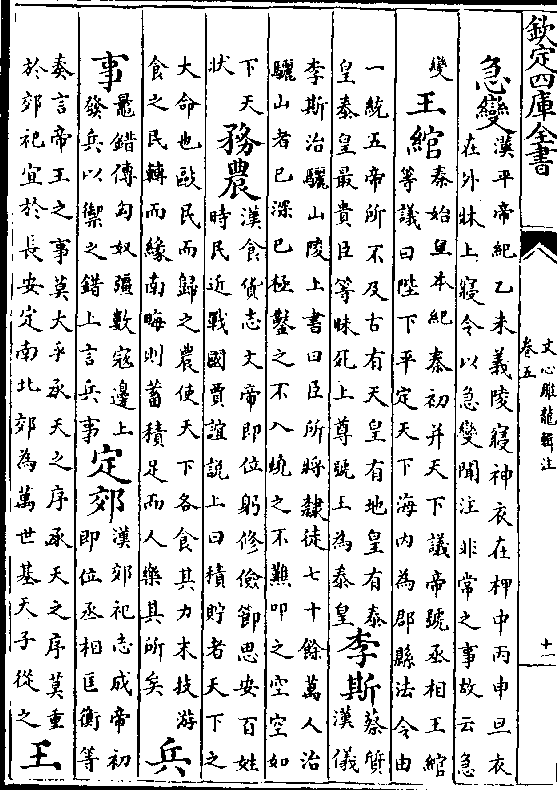 欽定四庫全書
文心雕龍輯注
卷五
十一
急變
漢平帝紀乙未義陵寢神衣在柙中丙申旦衣
在外牀上寢令以急變聞注非常之事故云急
變
王綰
秦始皇本紀秦初并天下議帝號丞相王綰
等議曰陛下平定天下海內為郡縣法令由
一統五帝所不及古有天皇有地皇有泰
皇泰皇最貴臣等昧死上尊號王為泰皇
李斯
蔡質
漢儀
李斯治驪山陵上書曰臣所將隸徒七十餘萬人治
驪山者已深已極鑿之不入燒之不難叩之空空如
下天
狀
務農
漢食貨志文帝即位躬修儉節思安百姓
時民近戰國賈誼說上曰積貯者天下之
大命也敺民而歸之農使天下各食其力末技游
食之民轉而緣南畮則蓄積足而人樂其所矣
兵
事
鼂錯傳匈奴彊數寇邊上
發兵以禦之錯上言兵事
定郊
漢郊祀志成帝初
即位丞相匡衡等
奏言帝王之事莫大乎承天之序承天之序莫重
於郊祀宜於長安定南北郊為萬世基天子從之
王